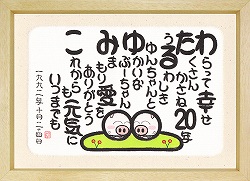 わらって幸せ
たくさん
かさね20年
うるわしき
ゆんちゃんと
ゆかいな
ぶーちゃん
みのり愛を
ありがとう
これからも元気に
いつまでも
一九九二年十月二十四日